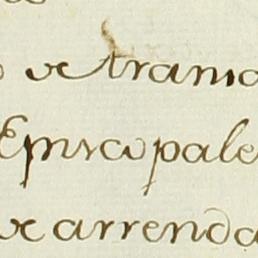 de trama
Episcopale
de arrenda